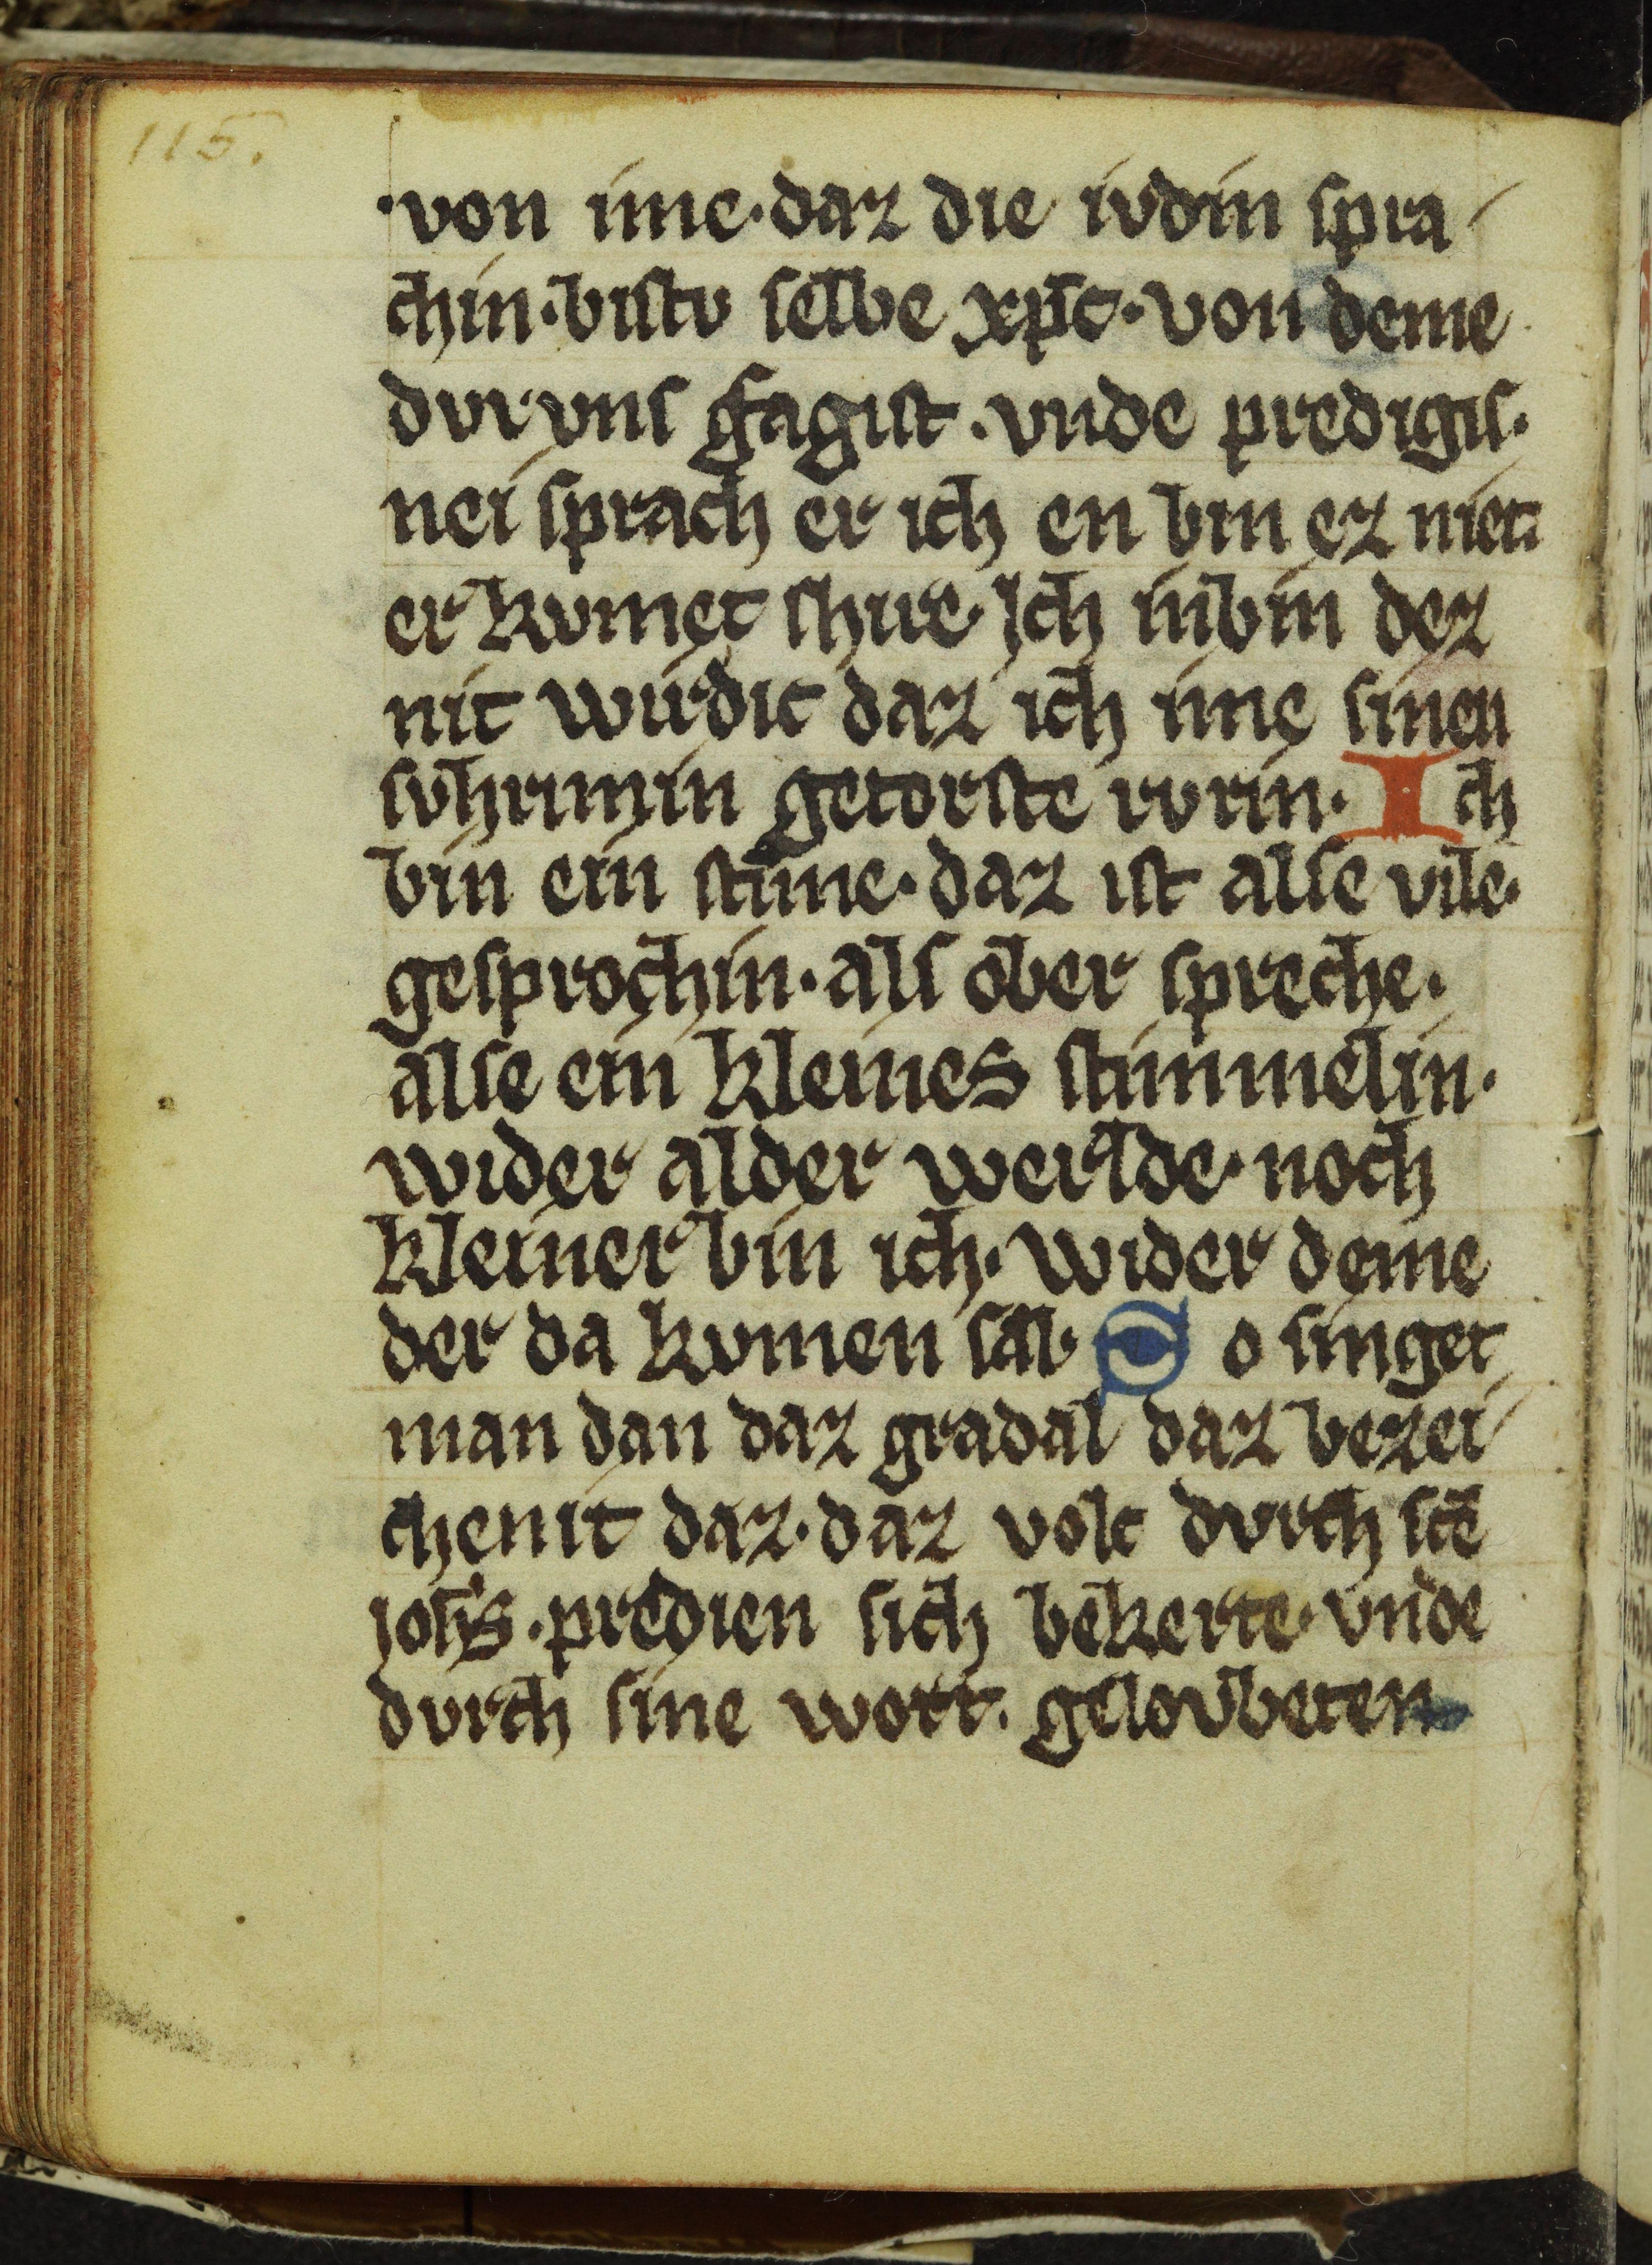 115.
·von ime·daz die ivdin spra
chin·bistv selbe xp̄c·von deme
dv vns sagist·vnde predigis·
nei sprach er ich en bin ez niet·
er kvmet shire·Ich inbin dez
nit wirdic daz ich ime sinen
svhrimin getorste rvrin·Ich
bin ein stime·daz ist alse vile·
gesprochin·als ober spreche·
alse ein kleines stimmelin·
wider alder werlde·noch
kleiner bin ich·wider deme
der da kvmen sal·So singet
man dan daz gradal daz bezei
chenit daz·daz volc dvrch sc̄e
iohs·predien sich bekerte·vnde
dvrch sine wort·gelovbeten